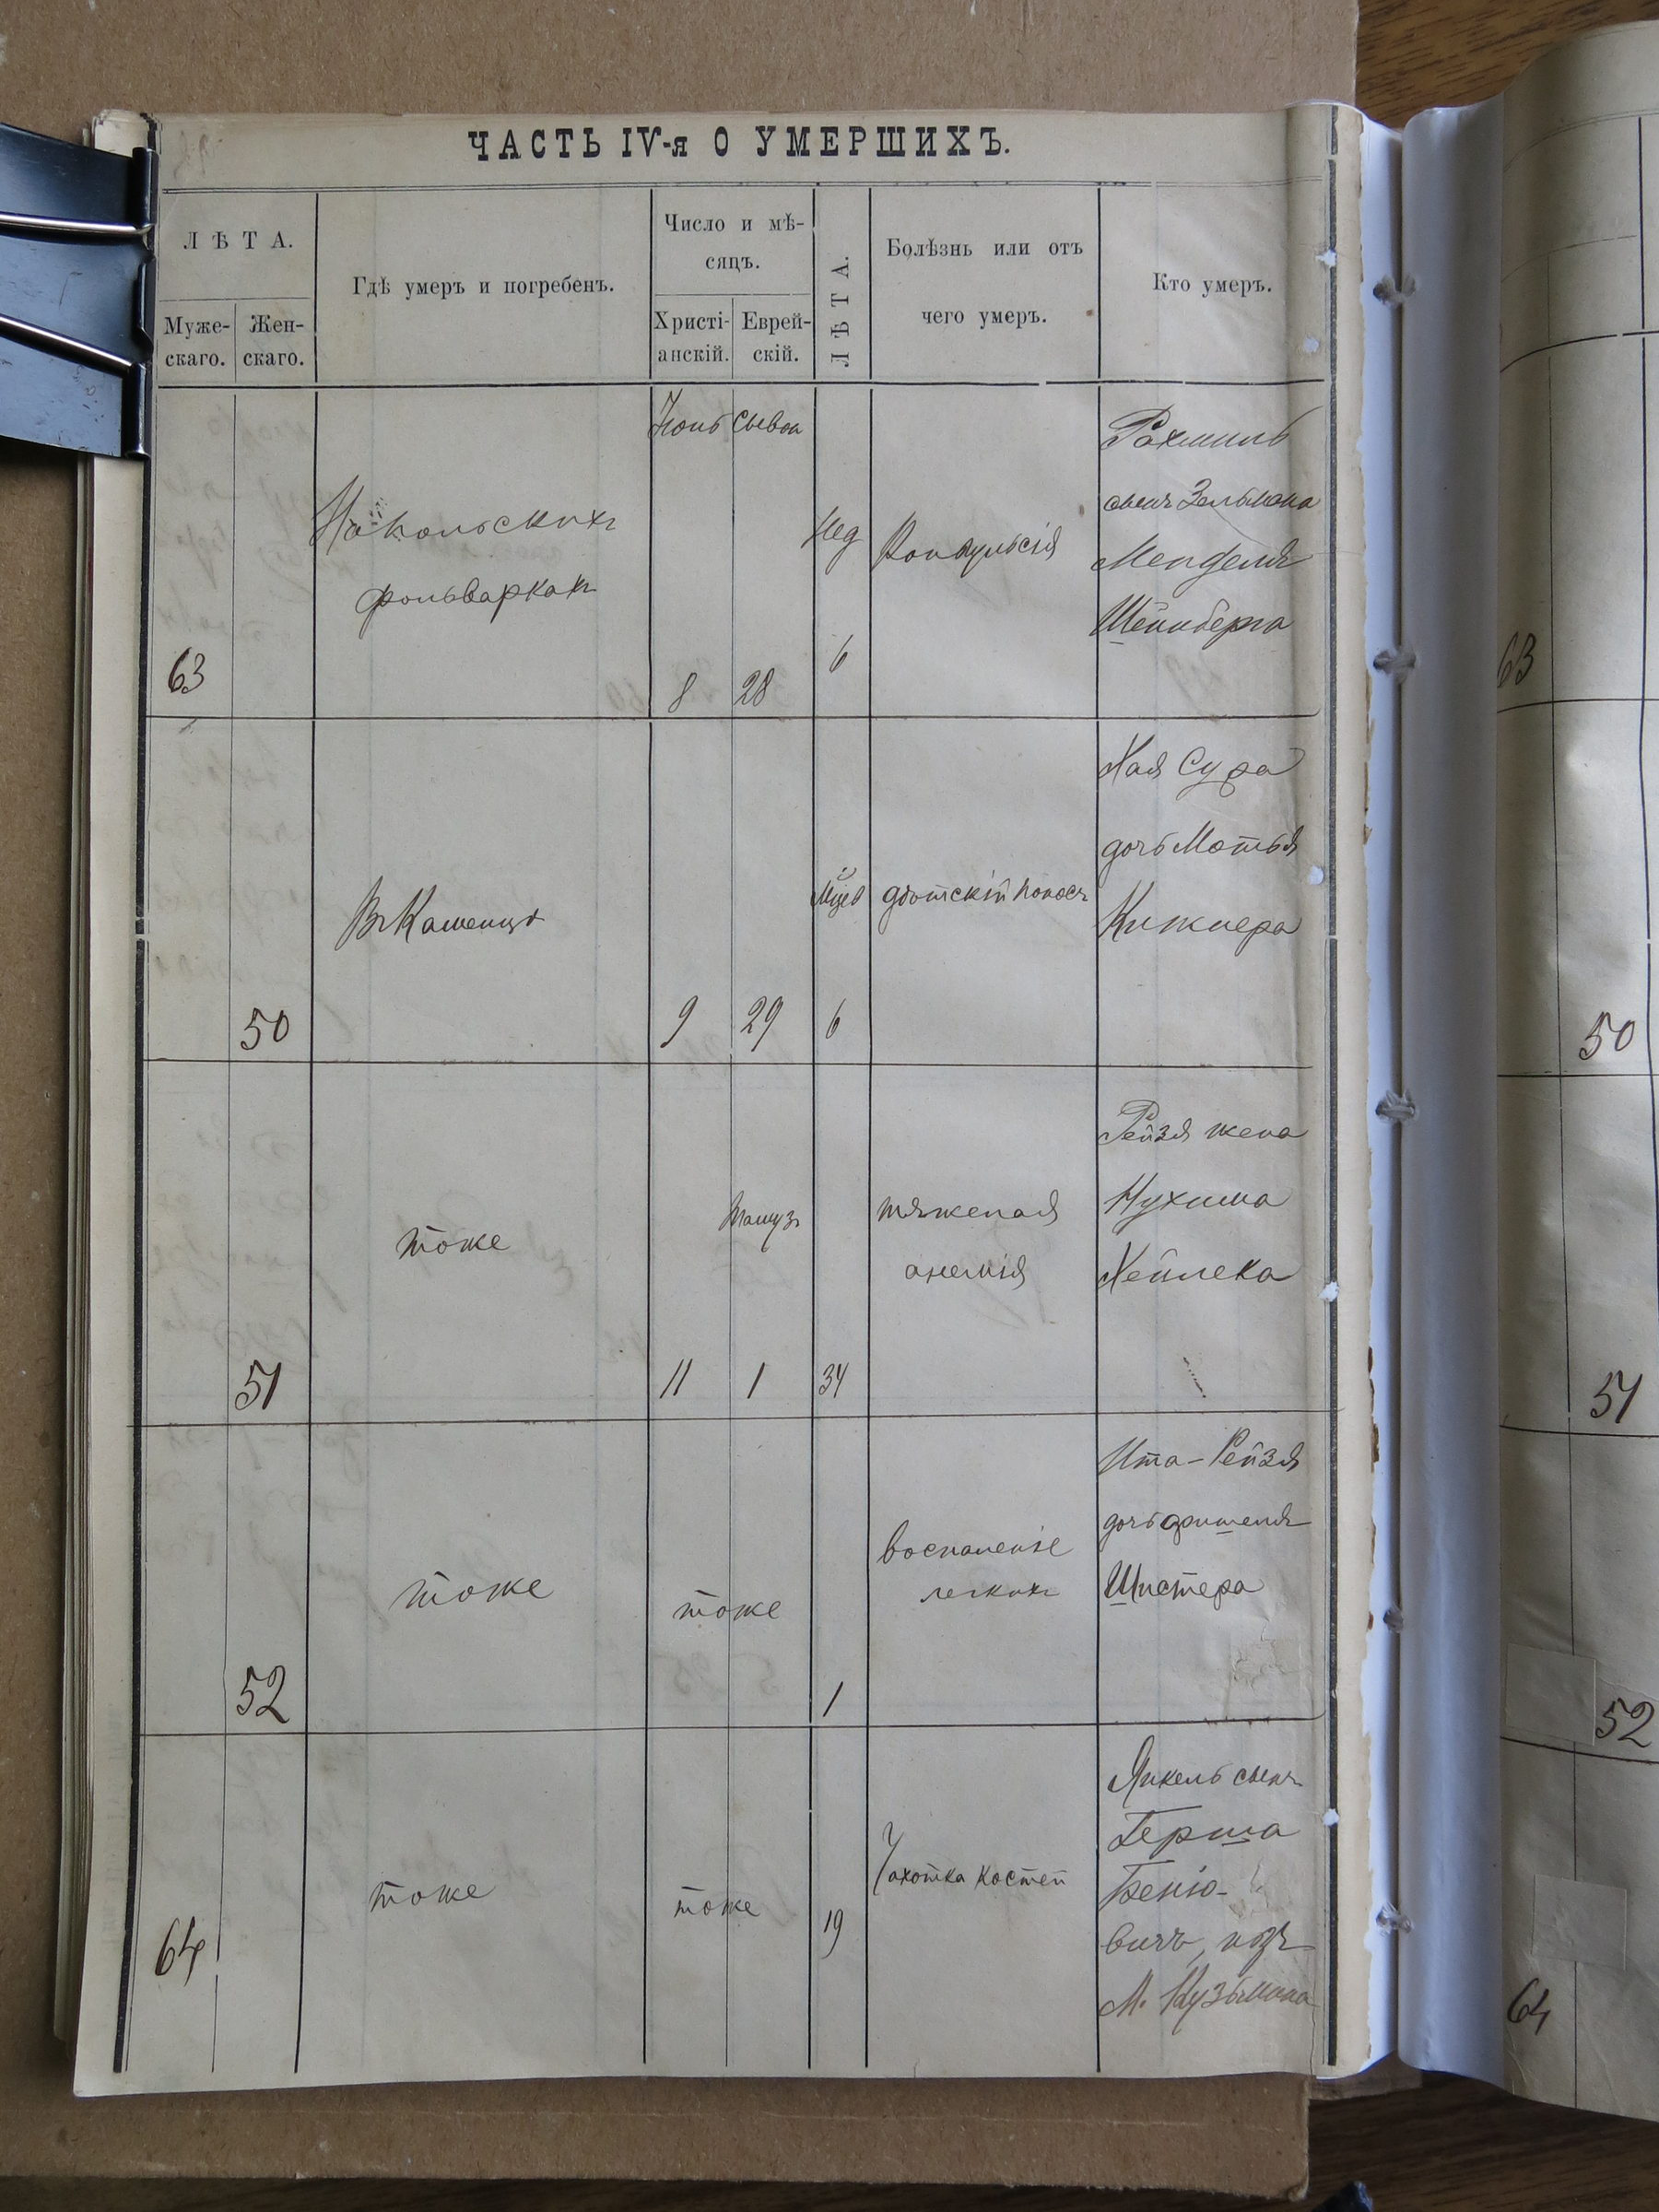 ЧАСТЬ IV-я О УМЕРШИХЪ.
ЛѢТА.
Муже-
скаго.
Жен-
скаго.
Гдѣ умеръ и погребенъ.
Число и мѣ-
сяцъ.
Христі-
анскій.
Еврей-
скій.
ЛѢТА.
Болѣзнь или отъ
чего умеръ.
Кто умеръ.
63
На польскихъ
фольваркахъ
Іюнь
8
Сывон
28
Нед
6
Конвульсія
Рахмиль
сынъ Зельмана
Менделя
Шейнберга
63
50
Въ Каменцѣ
9
29
Мцев
6
дѣтскій поносъ
Хая Сура
дочь Мотья
Кижнера
50
51
тоже
11
Тамузъ
1
34
тяжелая
анемія
Рейзя жена
Нухима
Хейлека
51
52
тоже
тоже
1
воспаленіе
легкихъ
Ита-Рейзя
дочь Фишеля
Шистера
52
64
тоже
тоже
19
Чахотка костей
Янкель сынъ
Герша
Беніо-
вичъ, изъ
М. Кузьмина
64